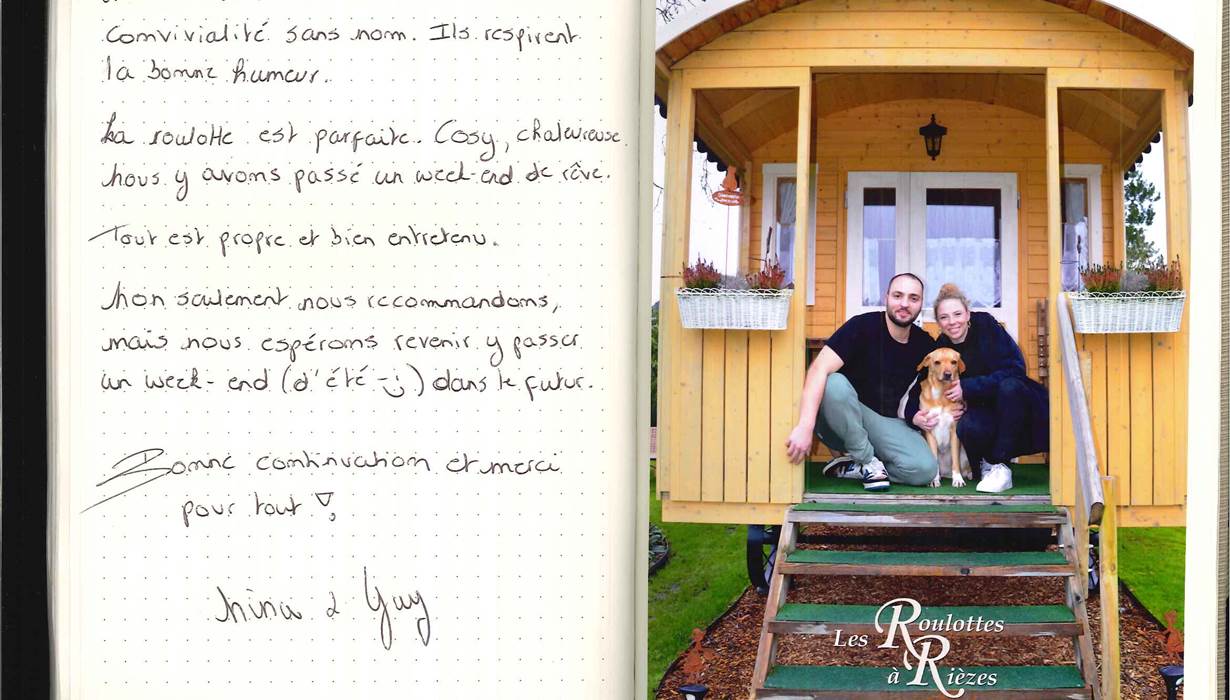 convivialité sans nom. Ils respirent
la bonne humeur.
La roulotte est parfaite. Cosy, chaleureuse
nous y avons passé un week-end de rêve.
Tout est propre et bien entretenu.
Non seulement nous recommandons,
mais nous espérons revenir y passer
un week-end (d'été ;-)) dans le futur.
Bonne continuation et merci
pour tout !
Nina & Guy
Les Roulottes
à Rièzes